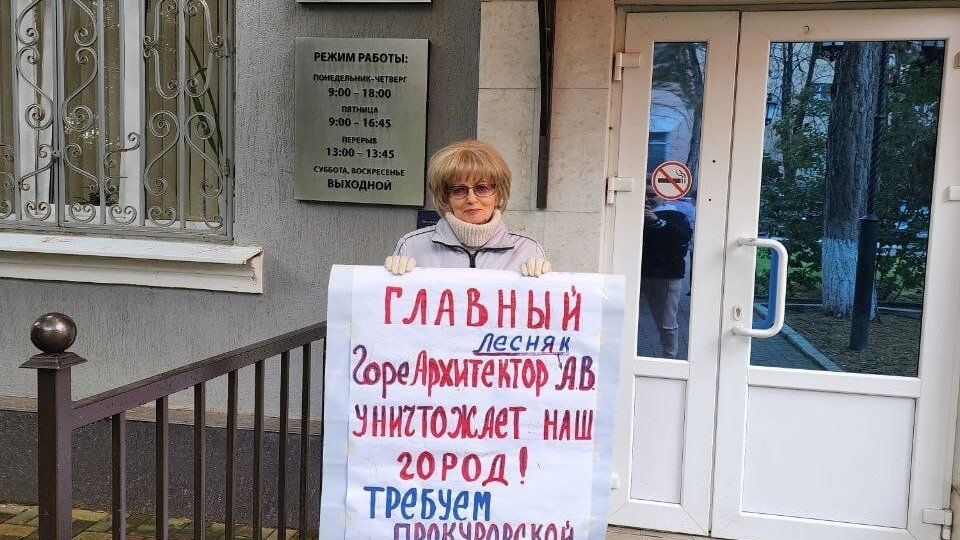 РЕЖИМ РАБОТЫ:
ПОНЕДЕЛЬНИК–ЧЕТВЕРГ
9:00 – 18:00
ПЯТНИЦА
9:00 – 16:45
ПЕРЕРЫВ
13:00 – 13:45
СУББОТА, ВОСКРЕСЕНЬЕ
ВЫХОДНОЙ
ГЛАВНЫЙ
ЛЕСНЯК
ГореАрхитектор А.В.
УНИЧТОЖАЕТ НАШ
ГОРОД!
ТРЕБУЕМ
ПРОКУРОРСКОЙ